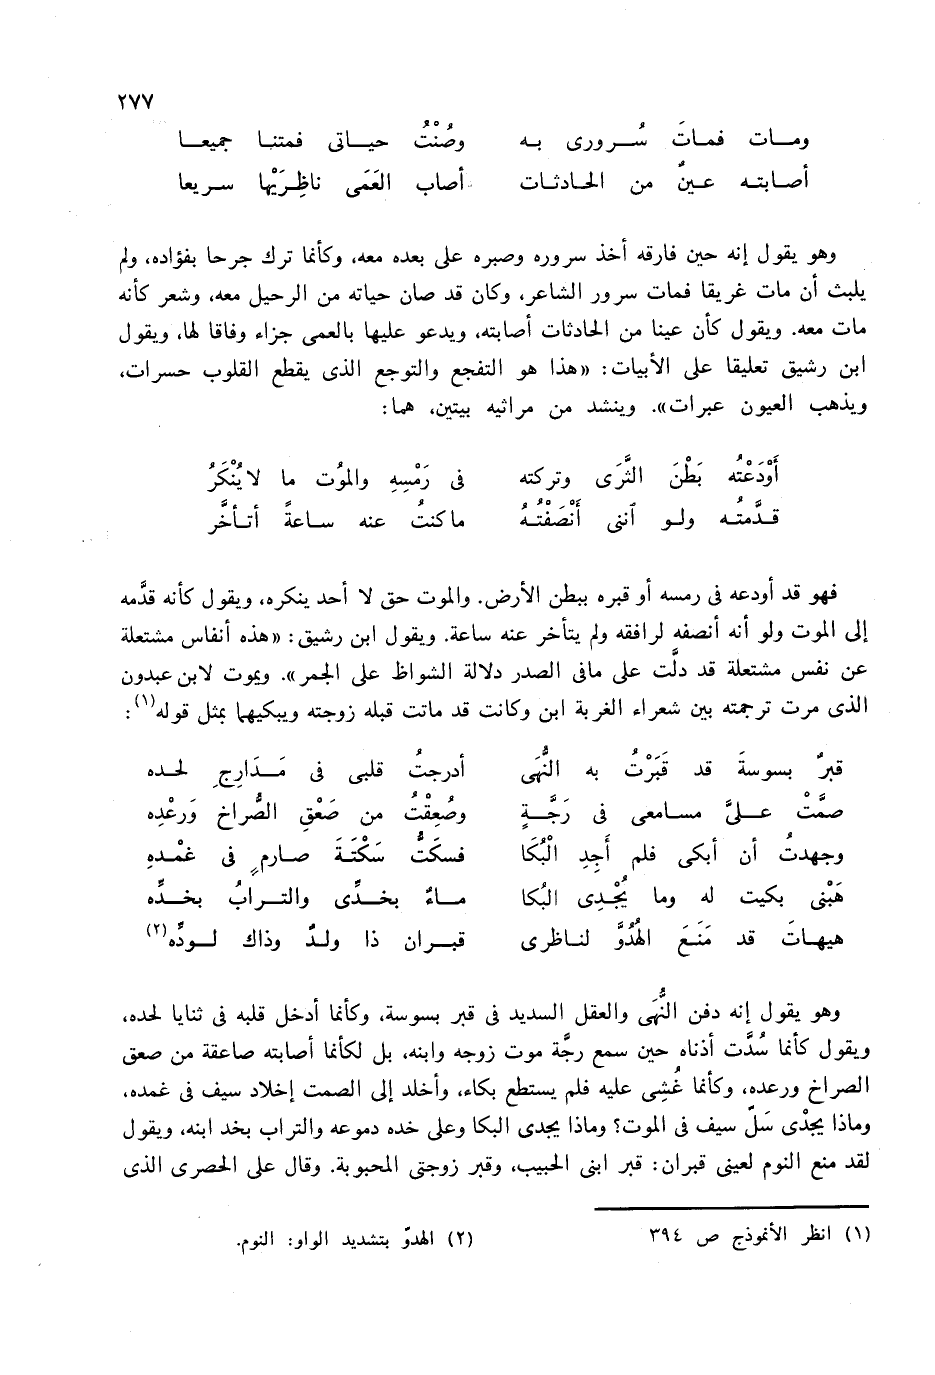 ٢٧٧
ومــات فماتَ سُــرورى به وصُنْتُ حيـاتى فمتنـا جميعــا
أصـابتـه عـينٌ من الحـادثـات أصاب العَمَى ناظِرَيْها سـريعا
وهو يقول إنه حين فارقه أخذ سروره وصبره على بعده معه، وكأنما ترك جرحا بفؤاده، ولم
يلبث أن مات غريقا فمات سرور الشاعر، وكان قد صان حياته من الرحيل معه، وشعر كأنه
مات معه. ويقول كأن عينا من الحادثات أصابته، ويدعو عليها بالعمى جزاء وفاقا لها، ويقول
ابن رشيق تعليقا على الأبيات: «هذا هو التفجع والتوجع الذى يقطع القلوب حسرات،
ويذهب العيون عبرات». وينشد من مراثيه بيتين، هما:
أوْدَعْتُه بَطْنَ الثَّرَى وتركته فى رَمْسِهِ والموُت ما لايُنْكَرُ
قـدَّمتُـه ولـو آننى أَنْصَفْتُـهُ ماكنتُ عنه سـاعةً أتـأخَّر
فهو قد أودعه فى رمسه أو قبره ببطن الأرض. والموت حق لا أحد ينكره، ويقول كأنه قدَّمه
إلى الموت ولو أنه أنصفه لرافقه ولم يتأخر عنه ساعة. ويقول ابن رشيق: «هذه أنفاس مشتعلة
عن نفس مشتعلة قد دلَّت على مافى الصدر دلالة الشواظ على الجمر». ويموت لابن عبدون
الذى مرت ترجمته بين شعراء الغربة ابن وكانت قد ماتت قبله زوجته ويبكيها بمثل قوله(١):
قبرٌ بسوسةَ قد قَبَرْتُ به النُّهَى أدرجتُ قلبى فى مَـدَارِجِ لحده
صمَّتْ عـلىَّ مسـامعى فى رَجَّـةٍ وصُعِقْتُ من صَعْقِ الصُّراخ وَرَعْدِه
وجهدتُ أن أبكى فلم أَجِدِ الْبُكَا فسكَتُّ سَكْتَـةَ صـارمٍ فى غمْـدِهِ
هَبْنى بكيت له وما يُجْـدِى البُكا مـاءٌ بخـدِّى والتـرابُ بخـدِّه
هيهاتَ قد مَنَـعَ الهُدُوَّ لنـاظرى قبـران ذا ولـدٌ وذاك لـودِّه(٢)
وهو يقول إنه دفن النُّهَى والعقل السديد فى قبر بسوسة، وكأنما أدخل قلبه فى ثنايا لحده،
ويقول كأنما سُدَّت أذناه حين سمع رجَّة موت زوجه وابنه، بل لكأنما أصابته صاعقة من صعق
الصراخ ورعده، وكأنما غُشِى عليه فلم يستطع بكاء، وأخلد إلى الصمت إخلاد سيف فى غمده،
وماذا يجدْى سَلّ سيف فى الموت؟ وماذا يجدى البكا وعلى خده دموعه والتراب بخد ابنه، ويقول
لقد منع النوم لعينى قبران: قبر ابنى الحبيب، وقبر زوجتى المحبوبة. وقال على الحصرى الذى
(١) انظر الأنموذج ص ٣٩٤
(٢) الهدوّ بتشديد الواو: النوم.